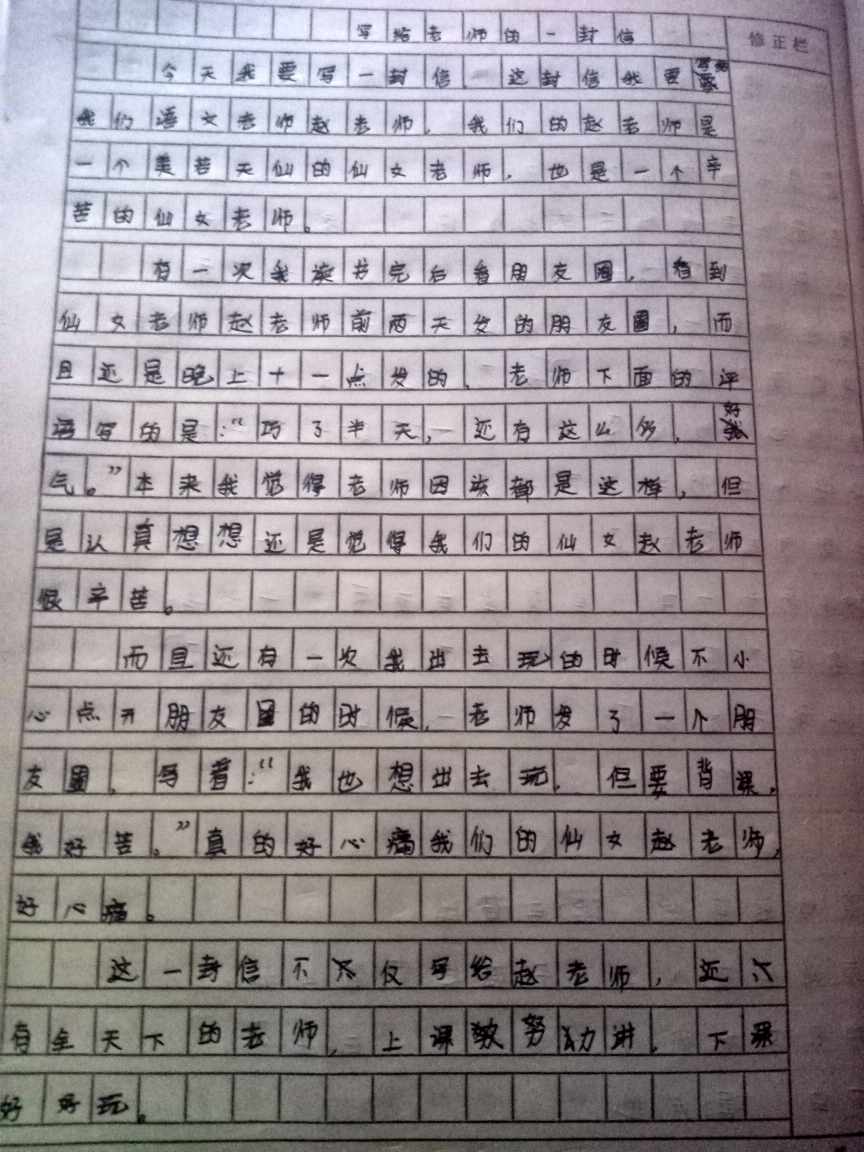 写给老师的一封信
修正栏
今天我要写一封信，这封信我要写给
我们语文老师赵老师，我们的赵老师是
一个美若天仙的仙女老师，也是一个辛
苦的仙女老师。
有一次我读书完后看朋友圈，看到
仙女老师赵老师前两天发的朋友圈，而
且还是晚上十一点发的，老师下面的评
语写的是：“巧了半天，还有这么多，好
气。”本来我觉得老师因该都是这样，但
是认真想想还是觉得我们的仙女赵老师
很辛苦。
而且还有一次我出去玩的时候不小
心点开朋友圈的时候，老师发了一个朋
友圈，写着：“我也想出去玩，但要背课，
我好苦。”真的好心痛我们的仙女赵老师，
好心痛。
这一封信不仅写给赵老师，还
有全天下的老师，上课教努力讲，下课
好好玩。